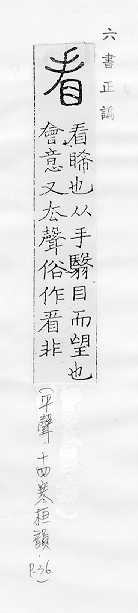 六書正譌
看
看睎也从手翳目而望也
會意又厺聲俗作㸔非
(平聲.十四寒桓韻.
P.36)